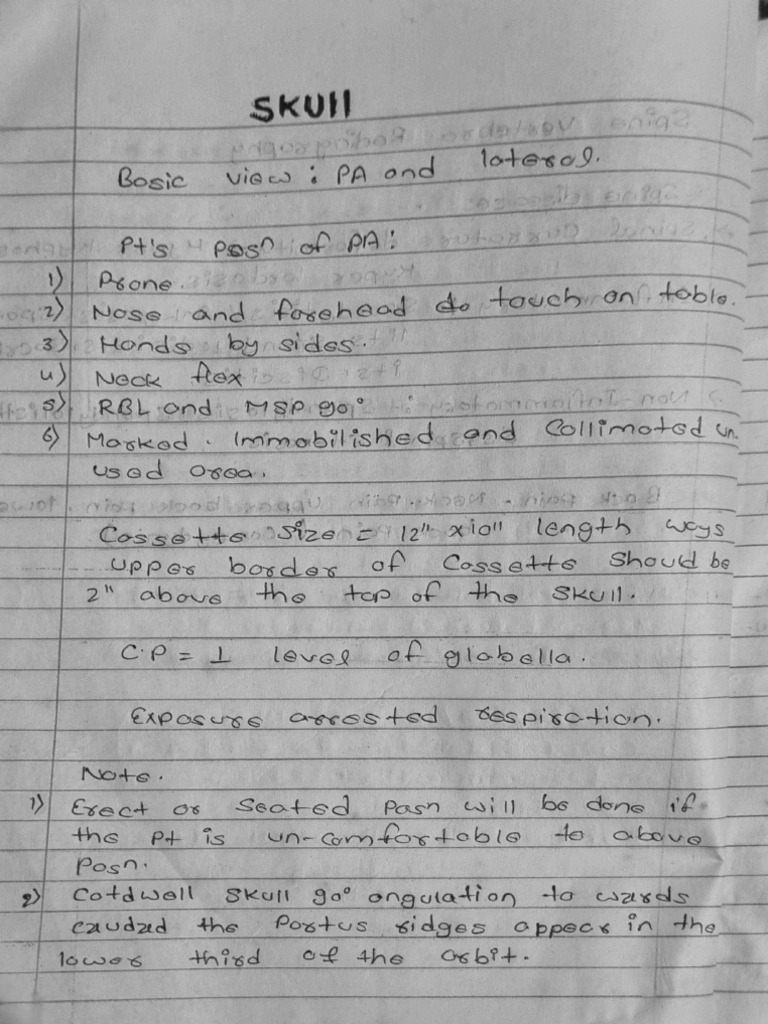 SKUll
Basic view : PA and lateral.
Pt's posn of PA :
1) Prone.
2) Nose and forehead do touch on table.
3) Hands by sides.
4) Neck flex
5) RBL and MSP 90°
6) Marked. Immobilished and Collimated un.
used area.
Cassette size = 12" x10" length ways
upper border of Cassette should be
2" above the top of the skull.
C.P = ⊥ level of glabella.
Exposure arrested respiration.
Note.
1) Erect or Seated Posn will be done if
the Pt is un-comfortable to above
posn.
2) Cotdwell skull 90° angulation to wards
caudad the Portus ridges appear in the
lower third of the orbit.